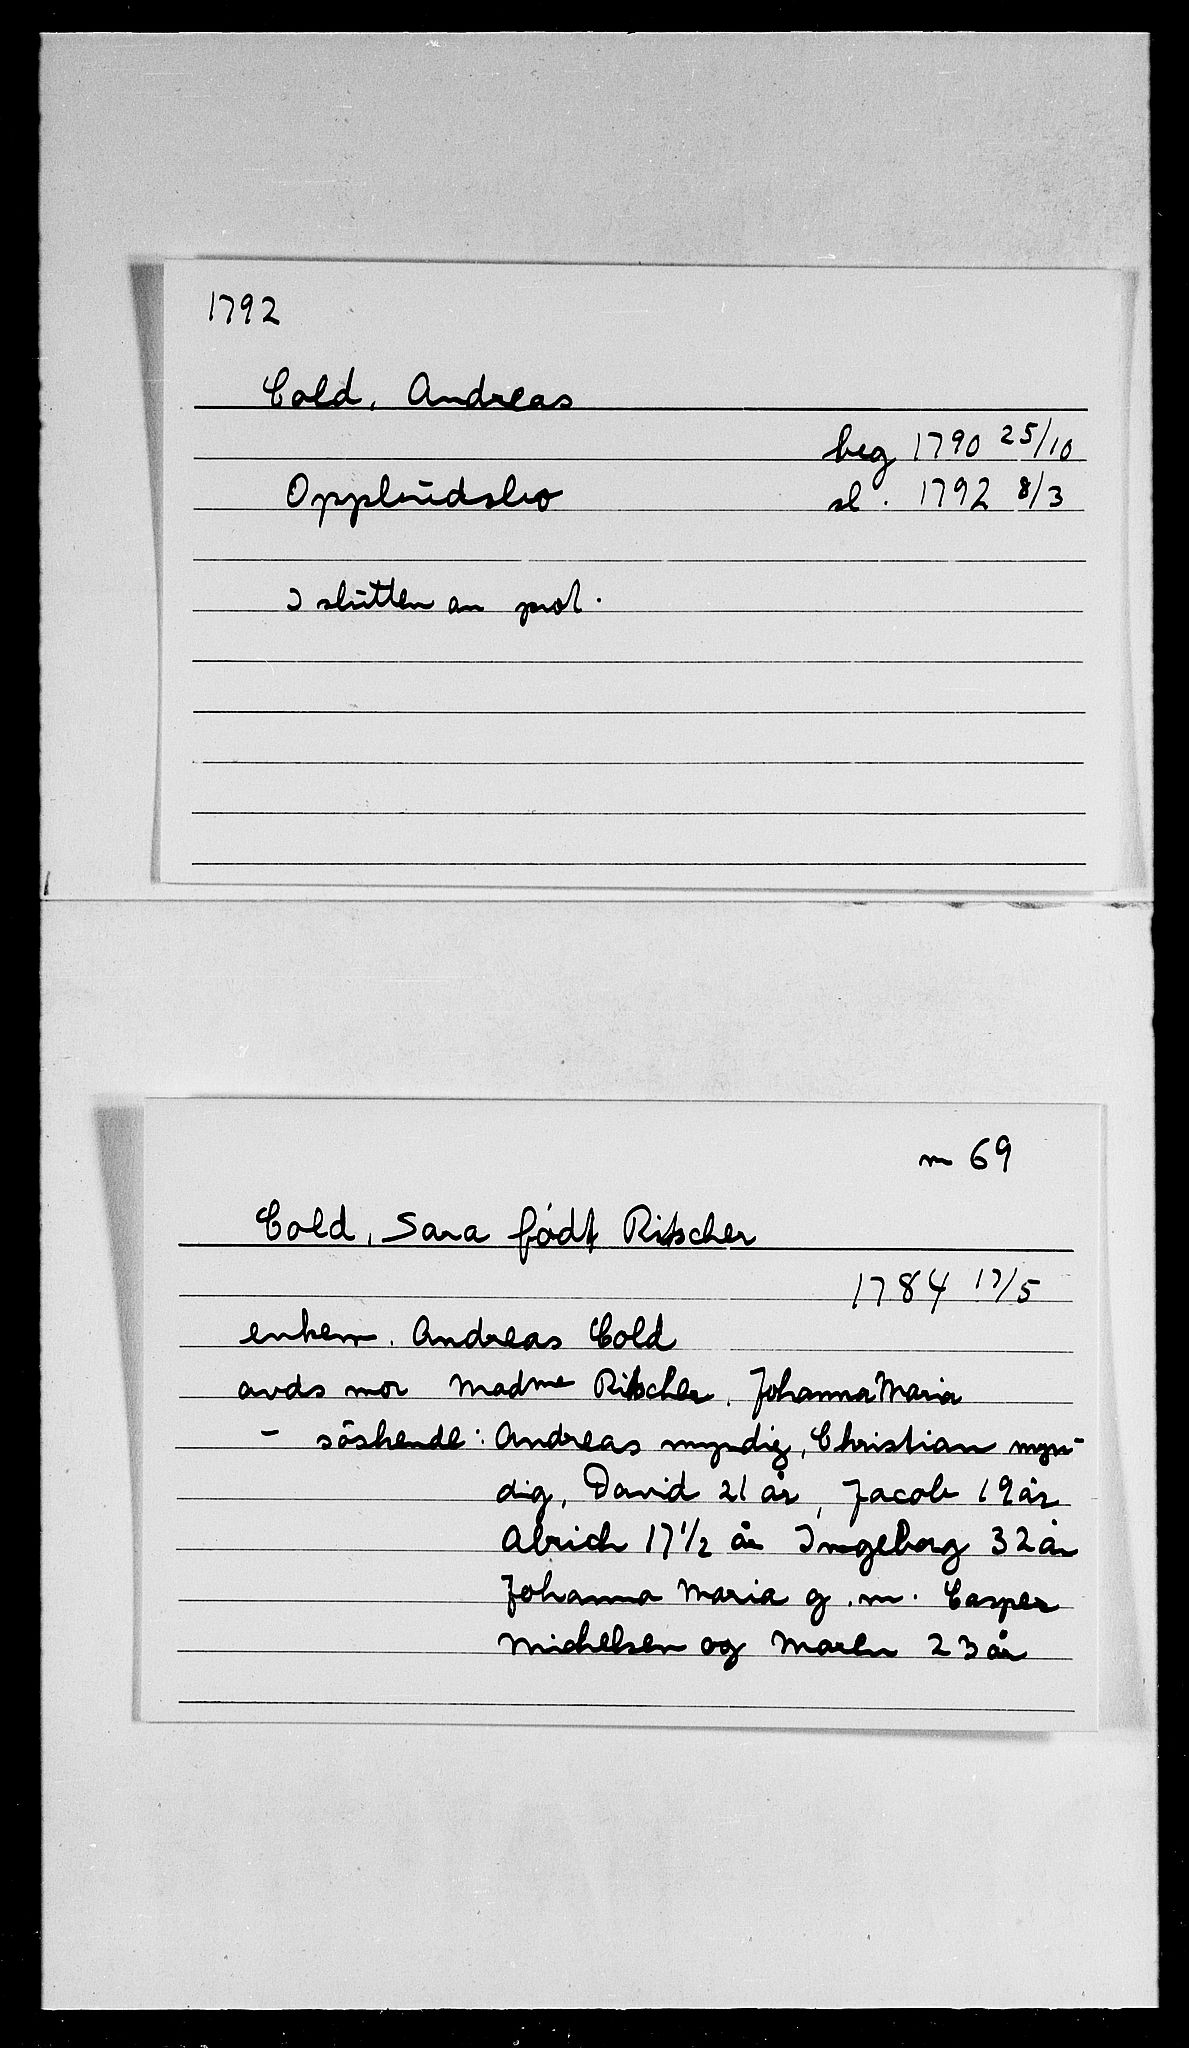 1792
Cold, Andreas
beg 1790 25/10
Oppbudsbo sl. 1792 8/3
I slutten av prot.
m 69
Cold, Sara født Ritscher
1784 17/5
enkem. Andreas Cold
avds mor Madme Ritscher, Johanna Maria
- søskende: Andreas myndig, Christian myn-
dig, David 21 år, Jacob 19 år
Alrich 17 1/2 år Ingeborg 32 år
Johanna Maria g.m. Casper
Michelsen og Maren 23 år